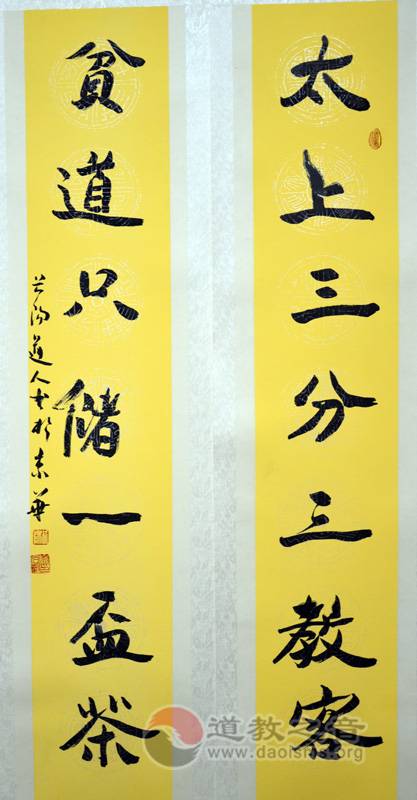 太上三分三教客
貧道只儲一盃茶
道人书於東華
道教之音
www.daoisms.org